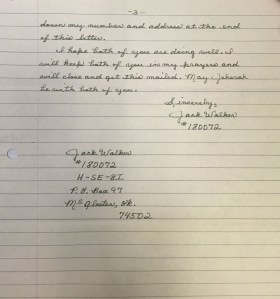 - 3 -
down my number and address at the end
of this letter.
I hope both of you are doing well. I
will keep both of you in my prayers and
will close and get this mailed. May Jehovah
be with both of you.
Sincerely,
Jack Walker
#180072
Jack Walker
#180072
H-SE-81
P.O. Box 97
McAlester, Ok.
74502